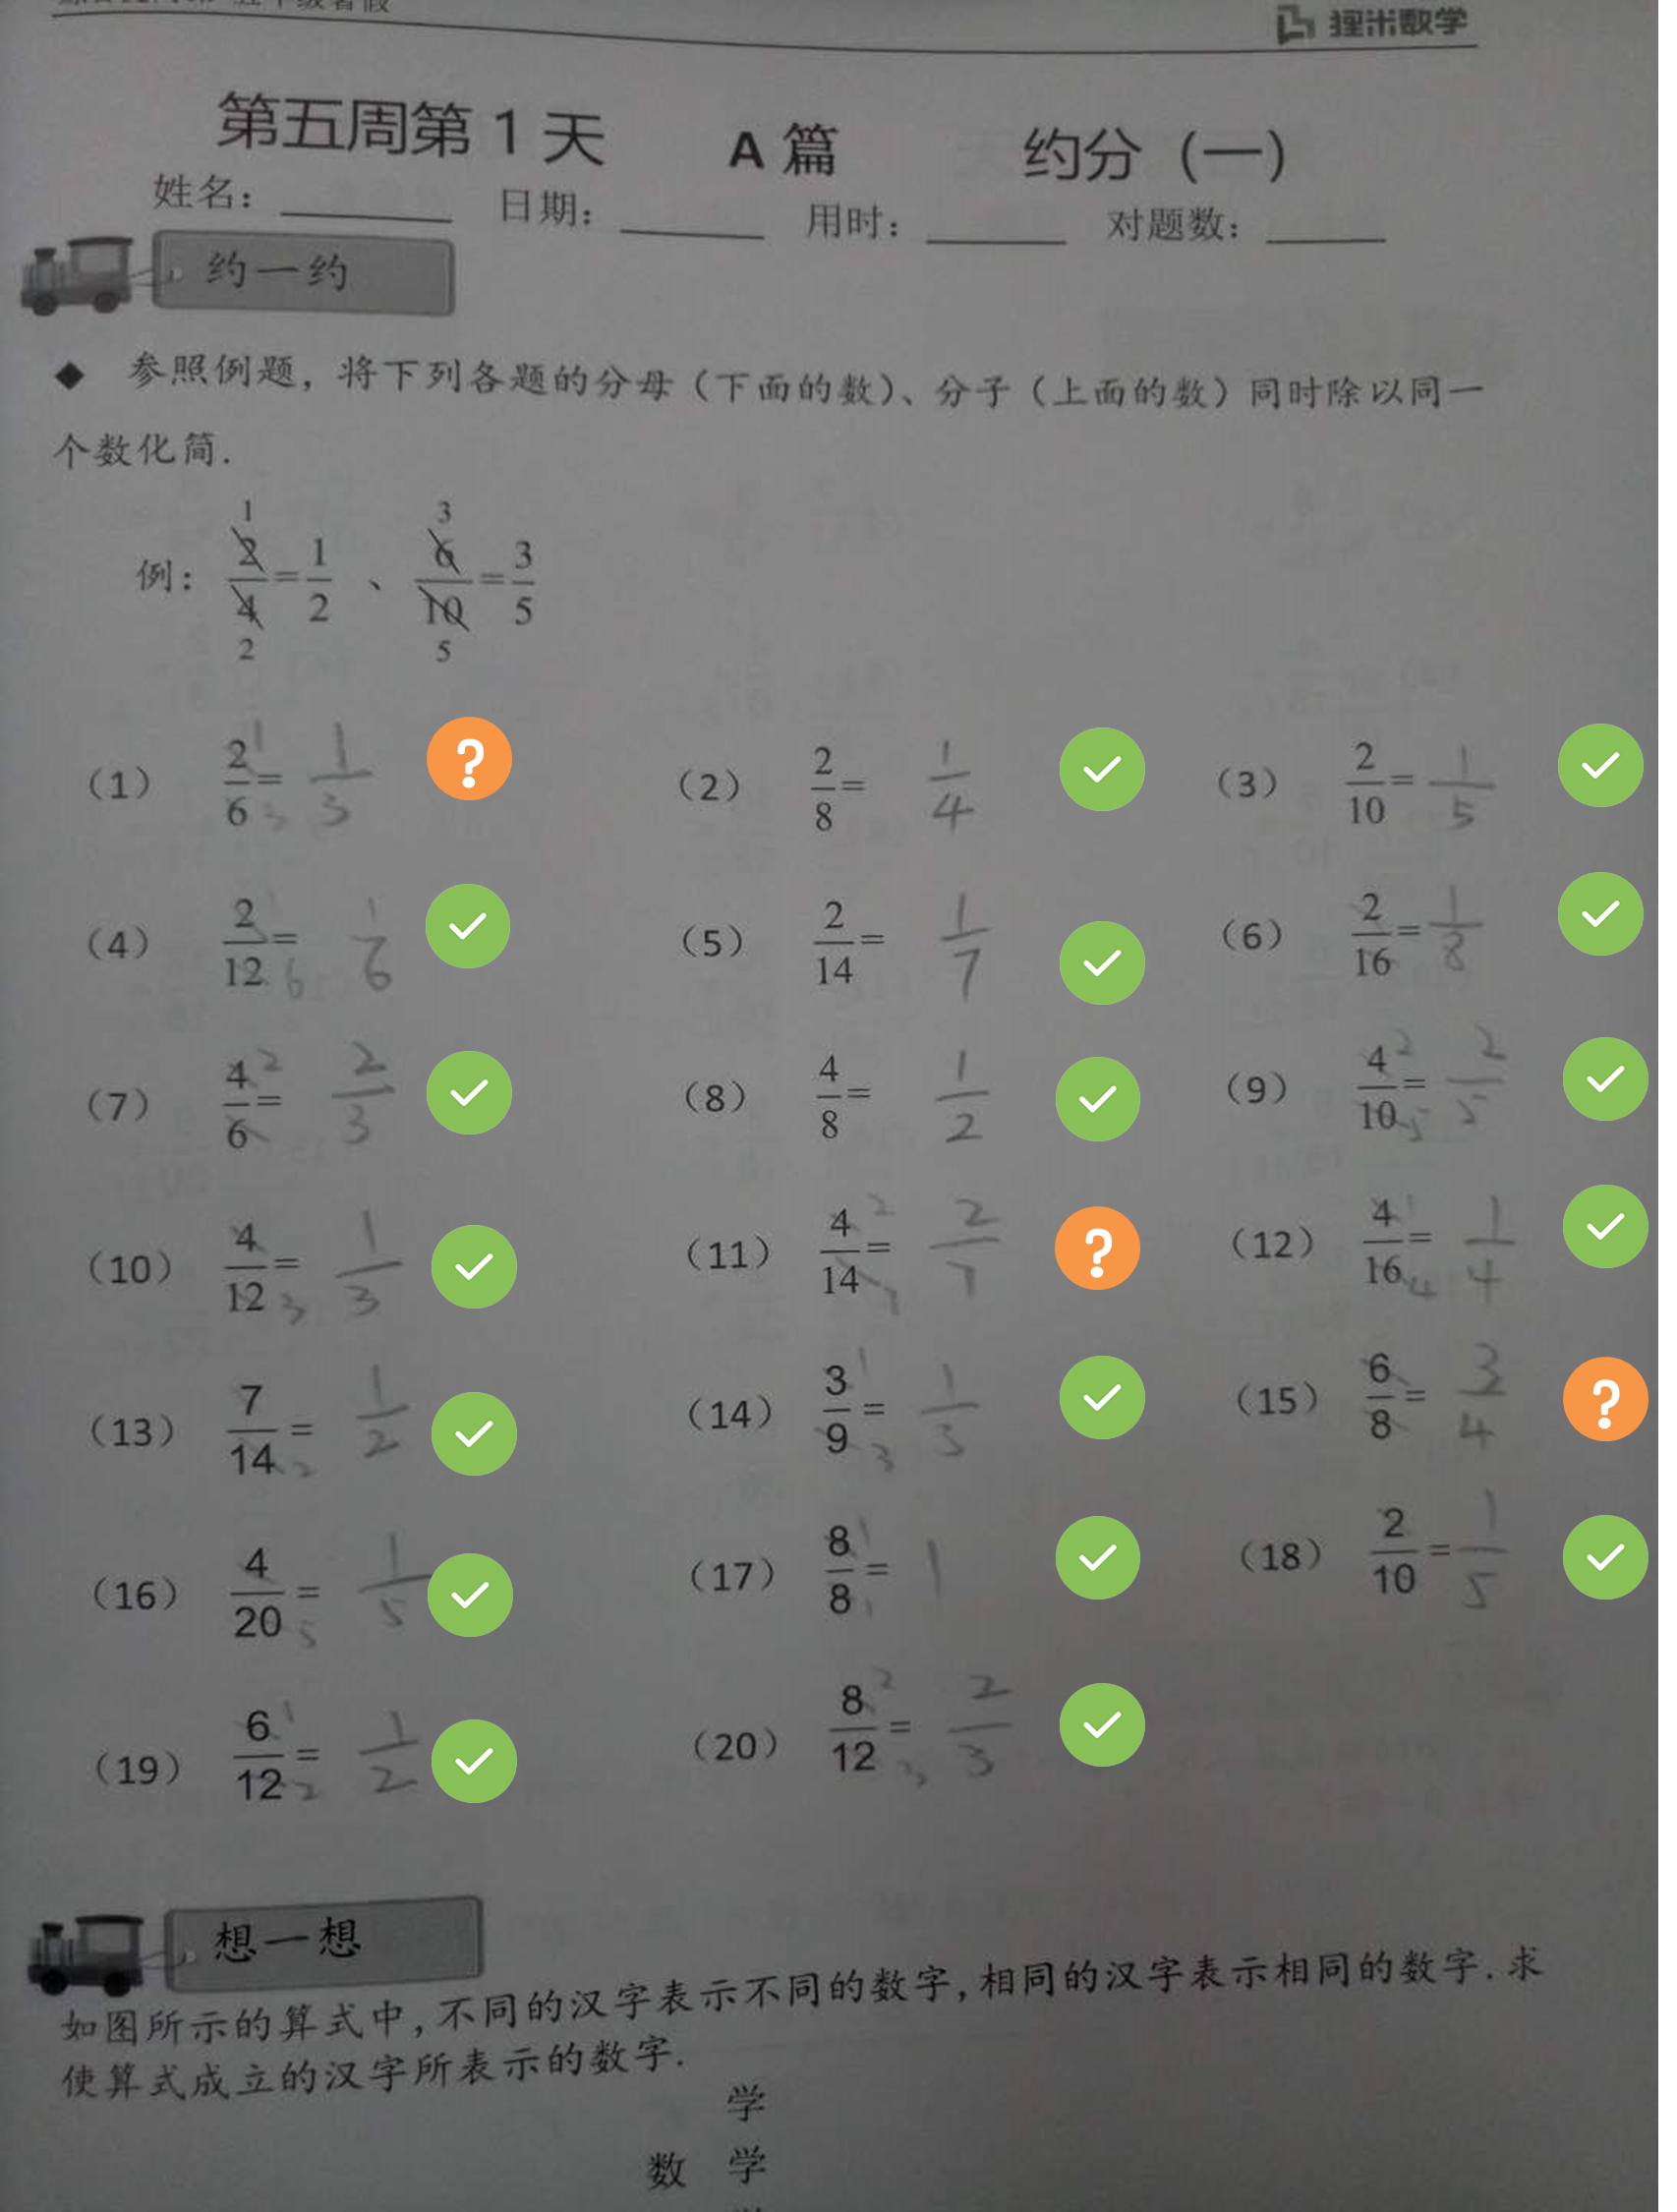 狸米数学
第五周第1天 A篇 约分（一）
姓名：______ 日期：______ 用时：______ 对题数：______
约一约
◆ 参照例题，将下列各题的分母（下面的数）、分子（上面的数）同时除以同一
个数化简.
1 3
例： 2/4=1/2 、 6/10=3/5
2 5
（1） 2/6= 1/3 ? （2） 2/8= 1/4 （3） 2/10= 1/5
（4） 2/12= 1/6 （5） 2/14= 1/7 （6） 2/16= 1/8
（7） 4/6= 2/3 （8） 4/8= 1/2 （9） 4/10= 2/5
（10） 4/12= 1/3 （11） 4/14= 2/7 ? （12） 4/16= 1/4
（13） 7/14= 1/2 （14） 3/9= 1/3 （15） 6/8= 3/4 ?
（16） 4/20= 1/5 （17） 8/8= 1 （18） 2/10= 1/5
（19） 6/12= 1/2 （20） 8/12= 2/3
想一想
如图所示的算式中，不同的汉字表示不同的数字，相同的汉字表示相同的数字.求
使算式成立的汉字所表示的数字.
学
数 学